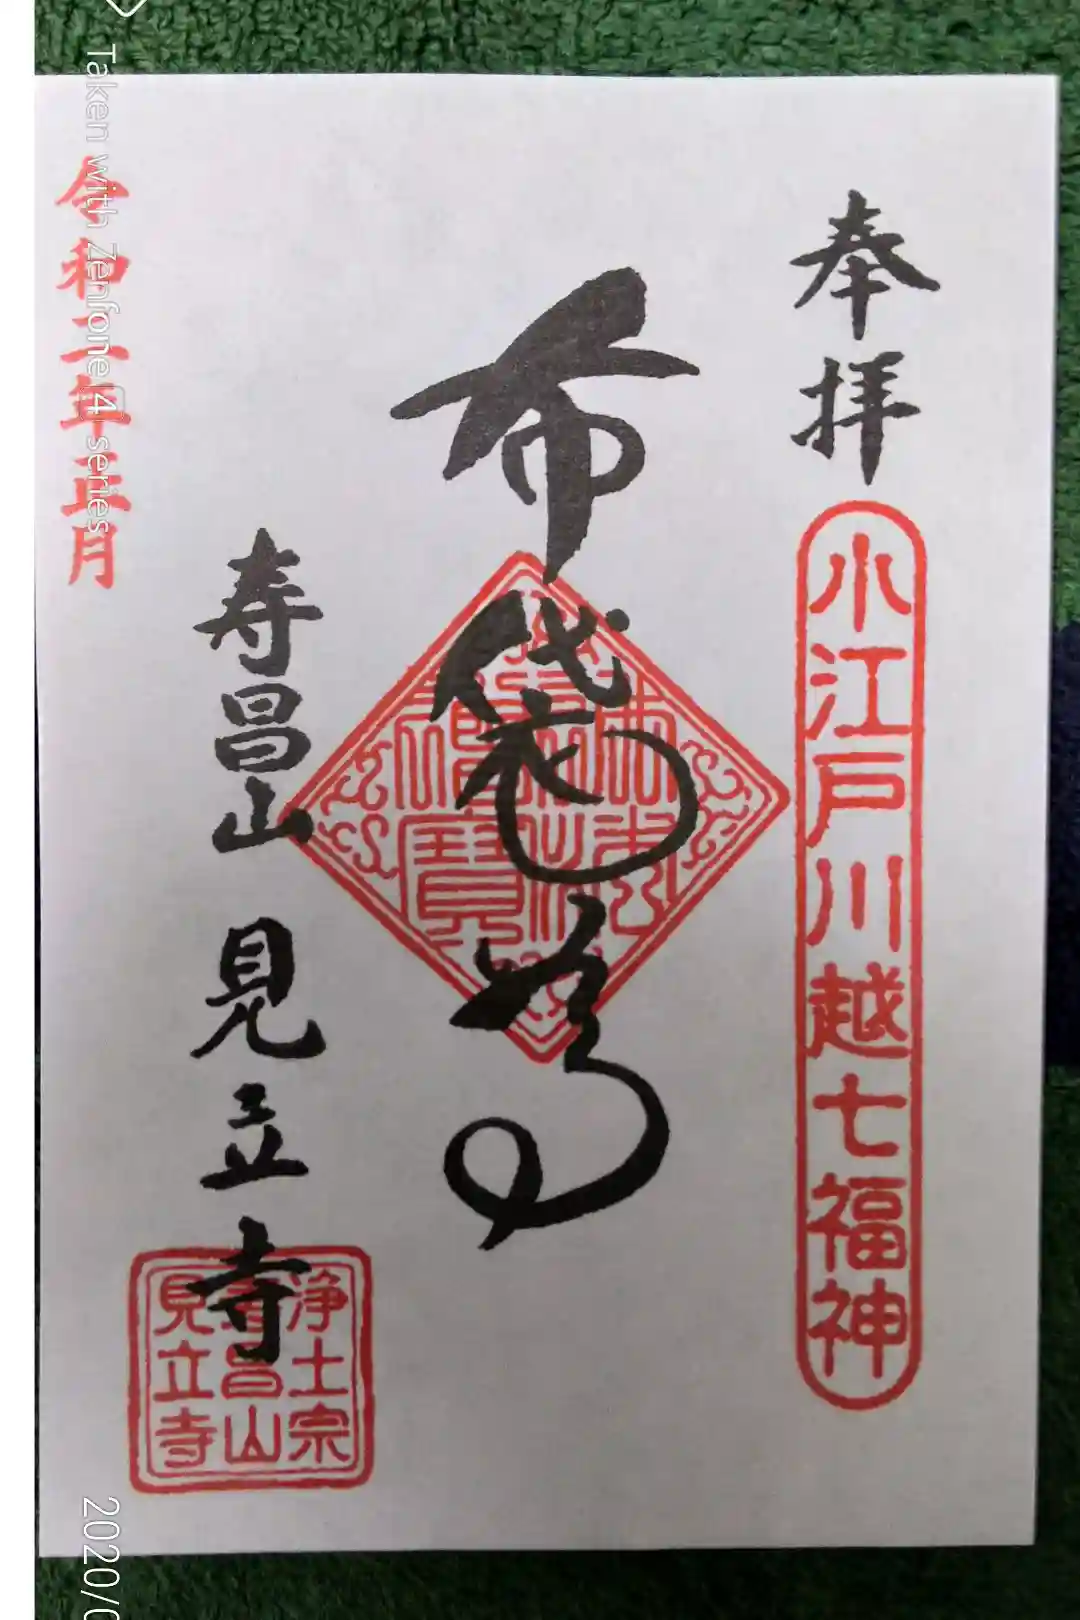 奉拝
小江戸川越七福神
布袋尊
佛法僧寶
寿昌山 見立寺
浄土宗
寿昌山
見立寺
令和二年正月
Taken with Zenfone 4 series